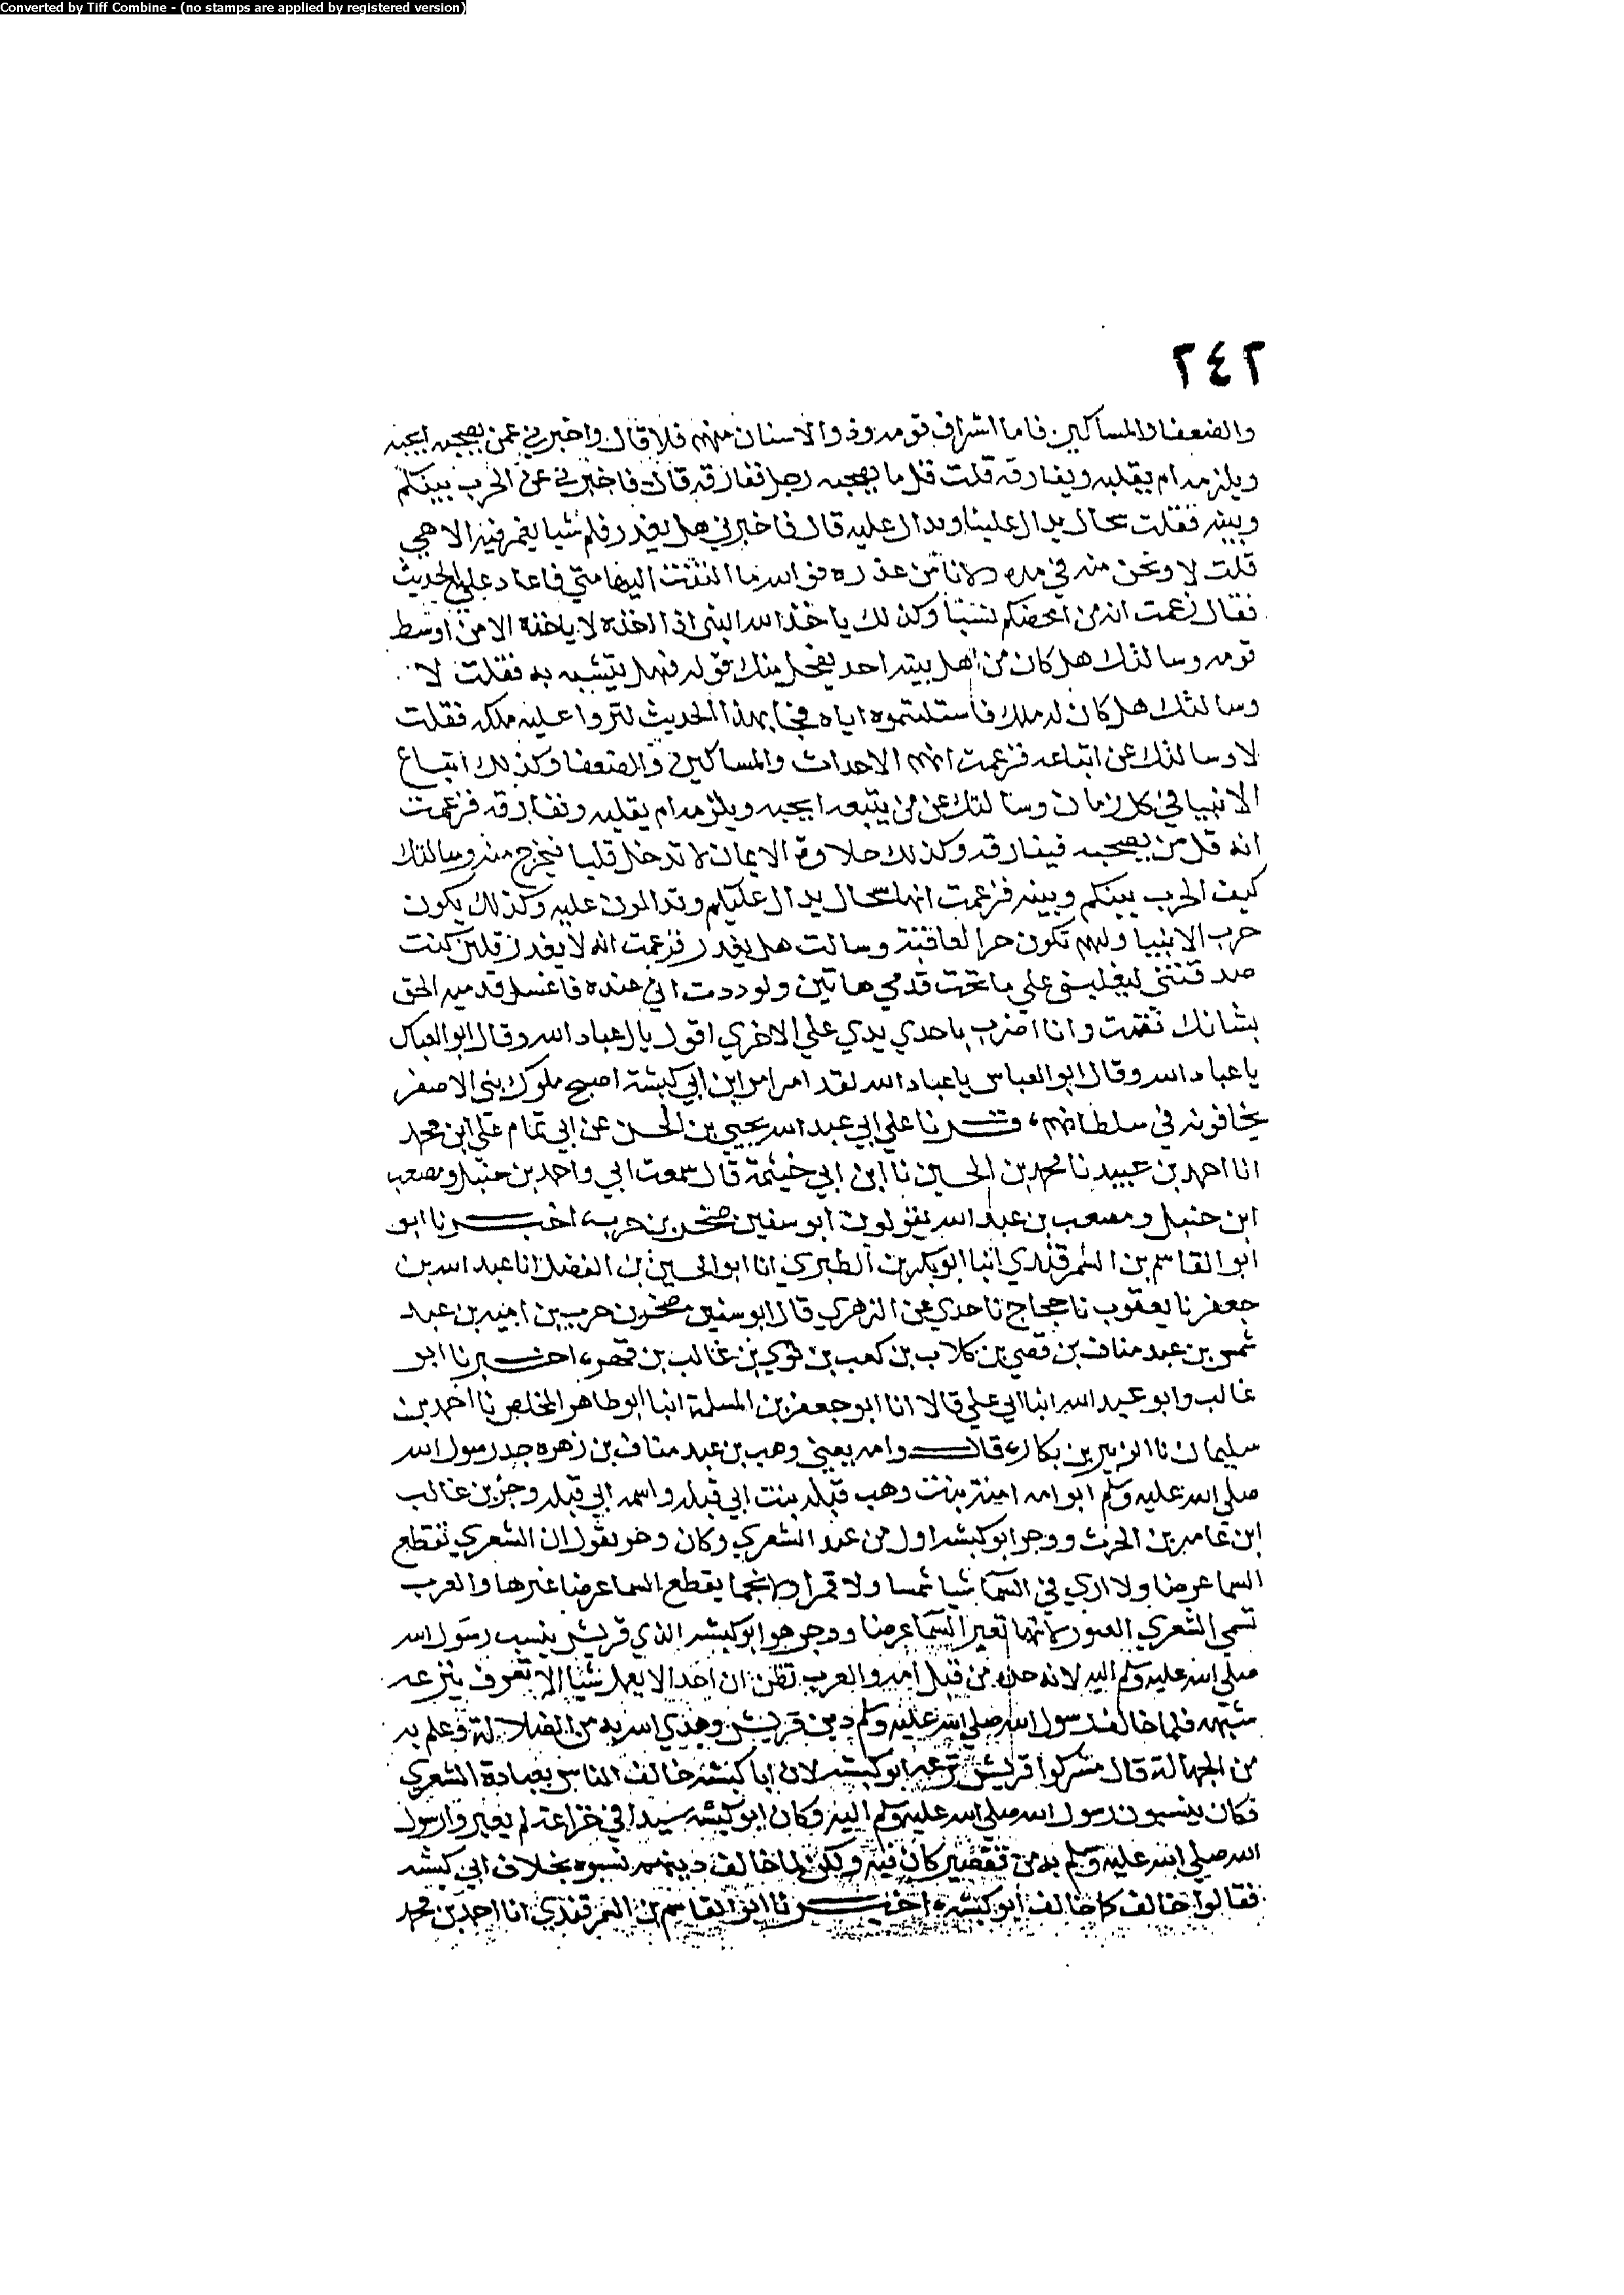 Converted by Tiff Combine - (no stamps are applied by registered version)
٢٤٢
والضعفا والمساكين فاما اشراف قومه وذو الاسنان منهم فلا قال واخبرني عمن يصحبه ايحبه
ويلزمه ام يقليه ويفارقه قلت قل ما يصحبه رجل ففارقه قال فاخبرني عن الحرب بينكم
وبينه فقلت سجال يدال علينا وندال عليه قال فاخبرني هل يغدر فلم شيا يغمز فيه الا هي
قلت لا ونحن منه في مده ولا نامن غدره فوالله ما التفت اليها مني فاعاد علي الحديث
فقال زعمت انه من امحضكم نسبا وكذلك ياخذ الله النبي اذا اخذه لا ياخذه الا من اوسط
قومه وسالتك هل كان من اهل بيته احد يقول مثل قوله فهو يتشبه به فقلت لا
وسالتك هل كان له ملك فاستلبتموه اياه فجا بهذا الحديث لتردوا عليه ملكه فقلت
لا وسالتك عن اتباعه فزعمت انهم الاحداث والمساكين والضعفا وكذلك اتباع
الانبيا في كل زمان وسالتك عن من يتبعه ايحبه ويلزمه ام يقليه ونفارقه فزعمت
انه قل من يصحبه فيفارقه وكذلك حلاوة الايمان لا تدخل قلبا فيخرج منه وسالتك
كيف الحرب بينكم وبينه فزعمت انها سجال يدال عليكم وتدالون عليه وكذلك يكون
حرب الانبيا ولهم تكون حرا لعاقبة وسالت هل يغدر فزعمت انه لا يغدر فلين كنت
صدقتني ليغلبني علي ما تحت قدمي هاتين ولوددت اني عنده فاغسل قدميه الحق
بشانك فقمت وانا اضرب باحدي يدي علي الاخري اقول يال عباد الله وقال ابو العباس
يا عباد الله وقال ابو العباس يا عباد الله لقد امر امر ابن ابي كبشة اصبح ملوك بني الاصفر
يخافونه في سلطانهم، قـــرنا علي ابي عبد الله يحيي بن الحسن عن ابي تمام علي ابن محمد
انا احمد بن عبيد نا محمد بن الحسين نا ابن ابي خيثمة قال سمعت ابي واحمد بن حنبل ومصعب
ابن حنبل ومصعب بن عبد الله يقولون ابو سفين صخر بن حرب، اخبـــرنا ابو
ابو القاسم بن السمرقندي انبا ابو بكر بن الطبري انا ابو الحسين بن الفضل انا عبد الله بن
جعفر نا يعقوب نا حجاج نا جدي عن الزهري قال ابو سفين صخر بن حرب بن امية بن عبد
شمس بن عبد مناف بن قصي بن كلاب بن كعب بن لوي بن غالب بن فهر، اخـــبرنا ابو
غالب وابو عبد الله انبا ابي علي قالا انا ابو جعفر بن المسلمة انبا ابو طاهر المخلص نا احمد بن
سليمان نا الزبير بن بكار، قالـــ وامه يعني وهب بن عبد مناف بن زهره جد رسول الله
صلي الله عليه وسلم ابو امه امنة بنت وهب قيله بنت ابي قيله واسم ابي قيله وجز بن غالب
ابن عامر بن الحرث ووجز ابو كبشه اول من عبد الشعري وكان وجز يقول ان الشعري تقطع
السما عرضا ولا اري في السما شيا شمسا ولا قمرا ولا نجما يقطع السما عرضا غيرها والعرب
تسمي الشعري العبور لانها تعبر السما عرضا ووجز هو ابو كبشه الذي قريش ينسب رسول الله
صلي الله عليه وسلم اليه لانه جده من قبل امه والعرب تظن ان احدا لا يعمل شيا الا بعرف ينزعه
شبهه فلما خالف رسول الله صلي الله عليه وسلم دين قريش وهدي الله به من الضلالة وعلم به
من الجهالة قال مشركوا قريش نزعه ابو كبشه لان ابا كبشه خالف الناس بعبادة الشعري
فكان ينسبون رسول الله صلي الله عليه وسلم اليه وكان ابو كبشه سيدا في خزاعة لم يعيروا رسول
الله صلي الله عليه وسلم به من تقصير كان فيه ولكن لما خالف دينهم نسبوه بخلاف ابي كبشه
فقالوا خالف كما خالف ابو كبشه، اخبـــرنا ابو القاسم بن السمرقندي انا احمد بن محمد